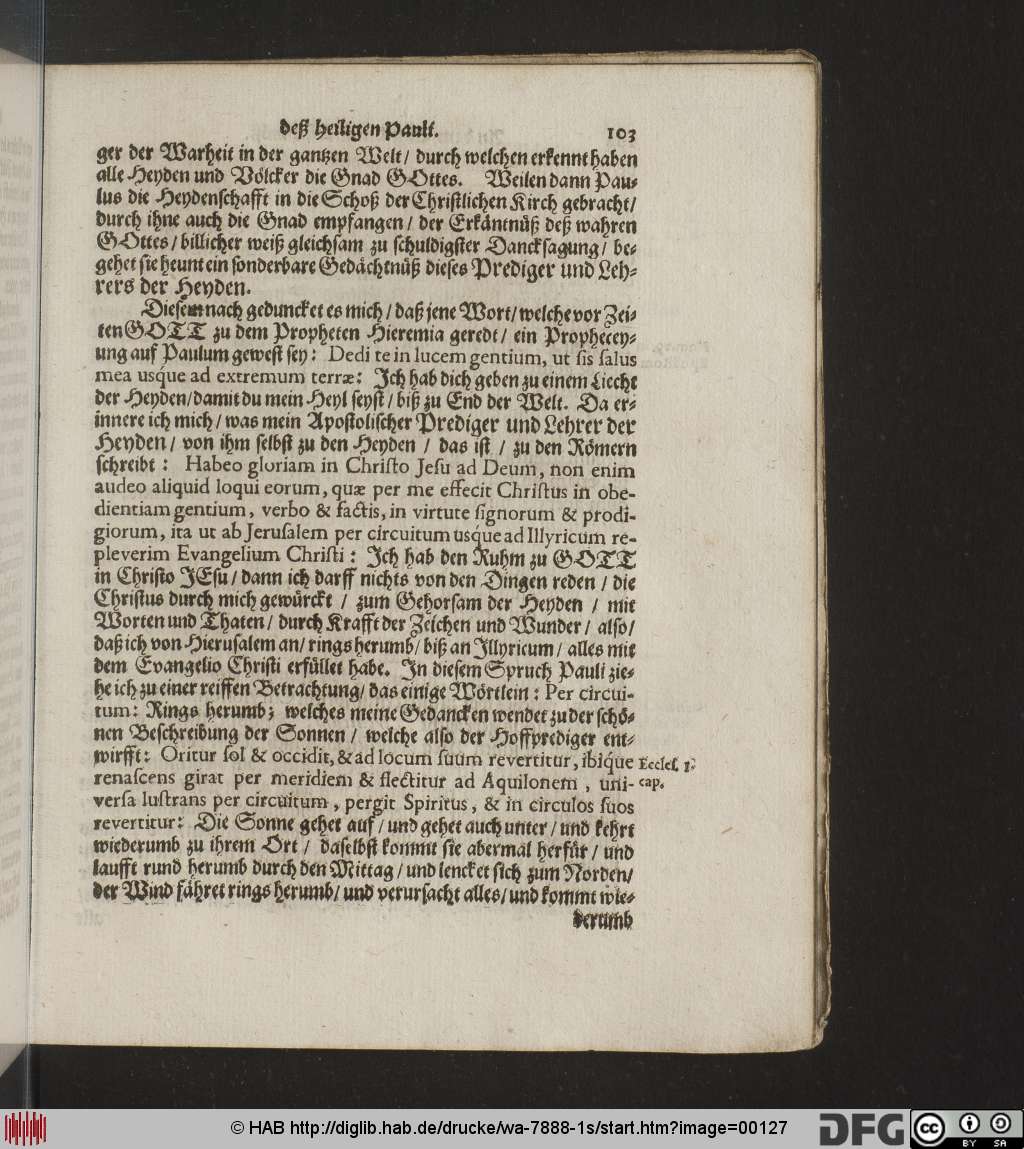 deß heiligen Pauli. 103
ger der Warheit in der gantzen Welt / durch welchen erkennt haben
alle Heyden und Völcker die Gnad GOttes. Weilen dann Pau-
lus die Heydenschafft in die Schoß der Christlichen Kirch gebracht /
durch ihne auch die Gnad empfangen / der Erkäntnüß deß wahren
GOttes / billicher weiß gleichsam zu schuldigster Dancksagung / be-
gehet sie heunt ein sonderbare Gedächtnüß dieses Prediger und Leh-
rers der Heyden.
Diesem nach geduncket es mich / daß jene Wort / welche vor Zei-
ten GOTT zu dem Propheten Hieremia geredt / ein Prophecey-
ung auf Paulum gewest sey: Dedi te in lucem gentium, ut sis salus
mea usq́ue ad extremum terræ: Ich hab dich geben zu einem Liecht
der Heyden / damit du mein Heyl seyst / biß zu End der Welt. Da er-
innere ich mich / was mein Apostolischer Prediger und Lehrer der
Heyden / von ihm selbst zu den Heyden / das ist / zu den Römern
schreibt: Habeo gloriam in Christo Jesu ad Deum, non enim
audeo aliquid loqui eorum, quæ per me effecit Christus in obe-
dientiam gentium, verbo & factis, in virtute signorum & prodi-
giorum, ita ut ab Jerusalem per circuitum usq́ue ad Illyricum re-
pleverim Evangelium Christi: Ich hab den Ruhm zu GOTT
in Christo JEsu / dann ich darff nichts von den Dingen reden / die
Christus durch mich gewürckt / zum Gehorsam der Heyden / mit
Worten und Thaten / durch Krafft der Zeichen und Wunder / also /
daß ich von Hierusalem an / rings herumb / biß an Illyricum / alles mit
dem Evangelio Christi erfüllet habe. In diesem Spruch Pauli zie-
he ich zu einer reiffen Betrachtung / das einige Wörtlein: Per circui-
tum: Rings herumb; welches meine Gedancken wendet zu der schö-
nen Beschreibung der Sonnen / welche also der Hoffprediger ent-
wirfft: Oritur sol & occidit, & ad locum suum revertitur, ibique Eccles. 1.
renascens girat per meridiem & flectitur ad Aquilonem, uni- cap.
versa lustrans per circuitum, pergit Spiritus, & in circulos suos
revertitur: Die Sonne gehet auf / und gehet auch unter / und kehrt
wiederumb zu ihrem Ort / daselbst kommt sie abermal herfür / und
laufft rund herumb durch den Mittag / und lencket sich zum Norden /
der Wind fähret rings herumb / und verursacht alles / und kommt wie-
derumb
© HAB http://diglib.hab.de/drucke/wa-7888-1s/start.htm?image=00127
DFG
cc BY SA